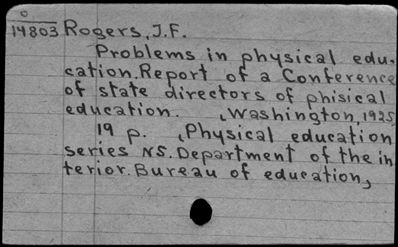 0
14803 Rogers, J.F.
Problems in physical edu-
cation. Report of a Conference
of state directors of phisical
education. , Washington, 1925,
19 p. , Physical education
series N5. Department of the in
terior. Bureau of education,